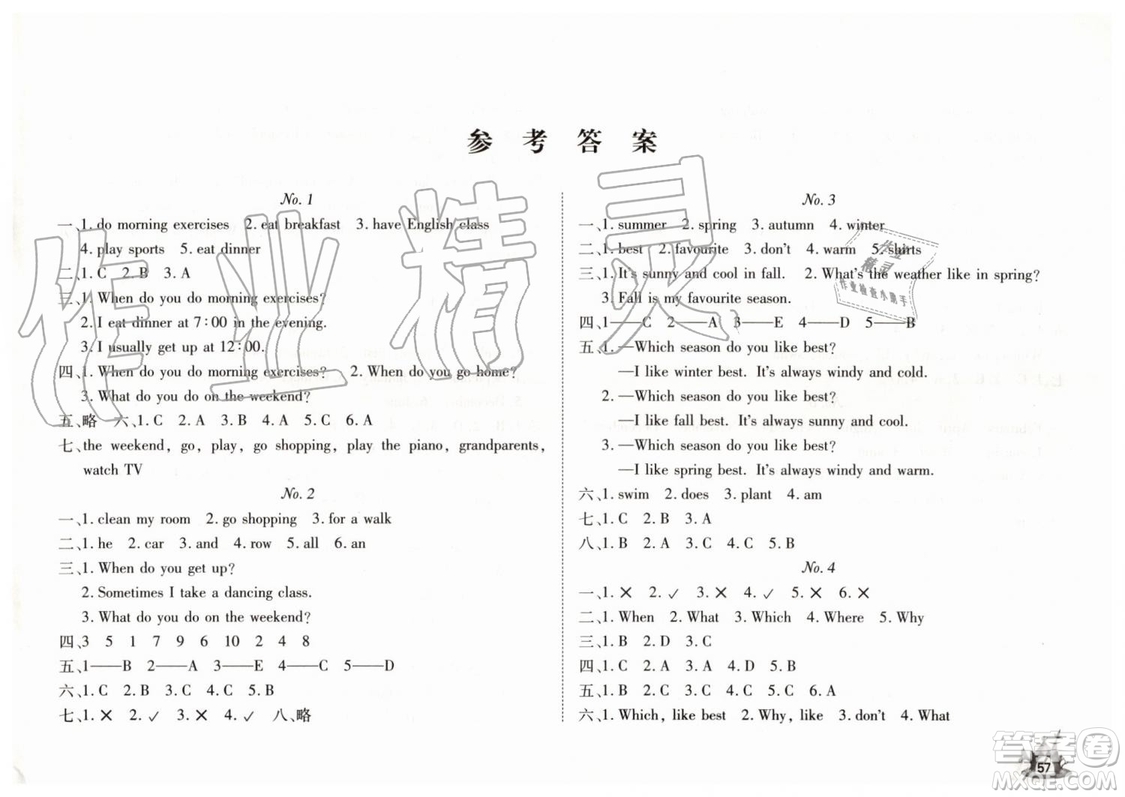 参考答案
No. 1
一、1. do morning exercises 2. eat breakfast 3. have English class
4. play sports 5. eat dinner
二、1. C 2. B 3. A
三、1. When do you do morning exercises?
2. I eat dinner at 7:00 in the evening.
3. I usually get up at 12:00.
四、1. When do you do morning exercises? 2. When do you go home?
3. What do you do on the weekend?
五、略 六、1. C 2. A 3. B 4. A 5. C 6. A
七、the weekend, go, play, go shopping, play the piano, grandparents,
watch TV
No. 2
一、1. clean my room 2. go shopping 3. for a walk
二、1. he 2. car 3. and 4. row 5. all 6. an
三、1. When do you get up?
2. Sometimes I take a dancing class.
3. What do you do on the weekend?
四、3 5 1 7 9 6 10 2 4 8
五、1——B 2——A 3——E 4——C 5——D
六、1. C 2. B 3. A 4. C 5. B
七、1. ✗ 2. ✓ 3. ✗ 4. ✓ 八、略
No. 3
一、1. summer 2. spring 3. autumn 4. winter
二、1. best 2. favourite 3. don't 4. warm 5. shirts
三、1. It's sunny and cool in fall. 2. What's the weather like in spring?
3. Fall is my favourite season.
四、1——C 2——A 3——E 4——D 5——B
五、1. —Which season do you like best?
—I like winter best. It's always windy and cold.
2. —Which season do you like best?
—I like fall best. It's always sunny and cool.
3. —Which season do you like best?
—I like spring best. It's always windy and warm.
六、1. swim 2. does 3. plant 4. am
七、1. C 2. B 3. A
八、1. B 2. A 3. C 4. C 5. A
No. 4
一、1. ✗ 2. ✓ 3. ✗ 4. ✓ 5. ✓ 6. ✗
二、1. When 2. What 3. Which 4. Where 5. Why
三、1. B 2. A 3. B 4. D 3. C
四、1. C 2. A 3. B 4. C 5. A
五、1. B 2. A 3. C 4. B 5. C 6. A
六、1. Which, like best 2. Why, like 3. don't 4. What
57
作业精灵
作业
精灵
作业检查小助手
答案圈
MXQE.COM